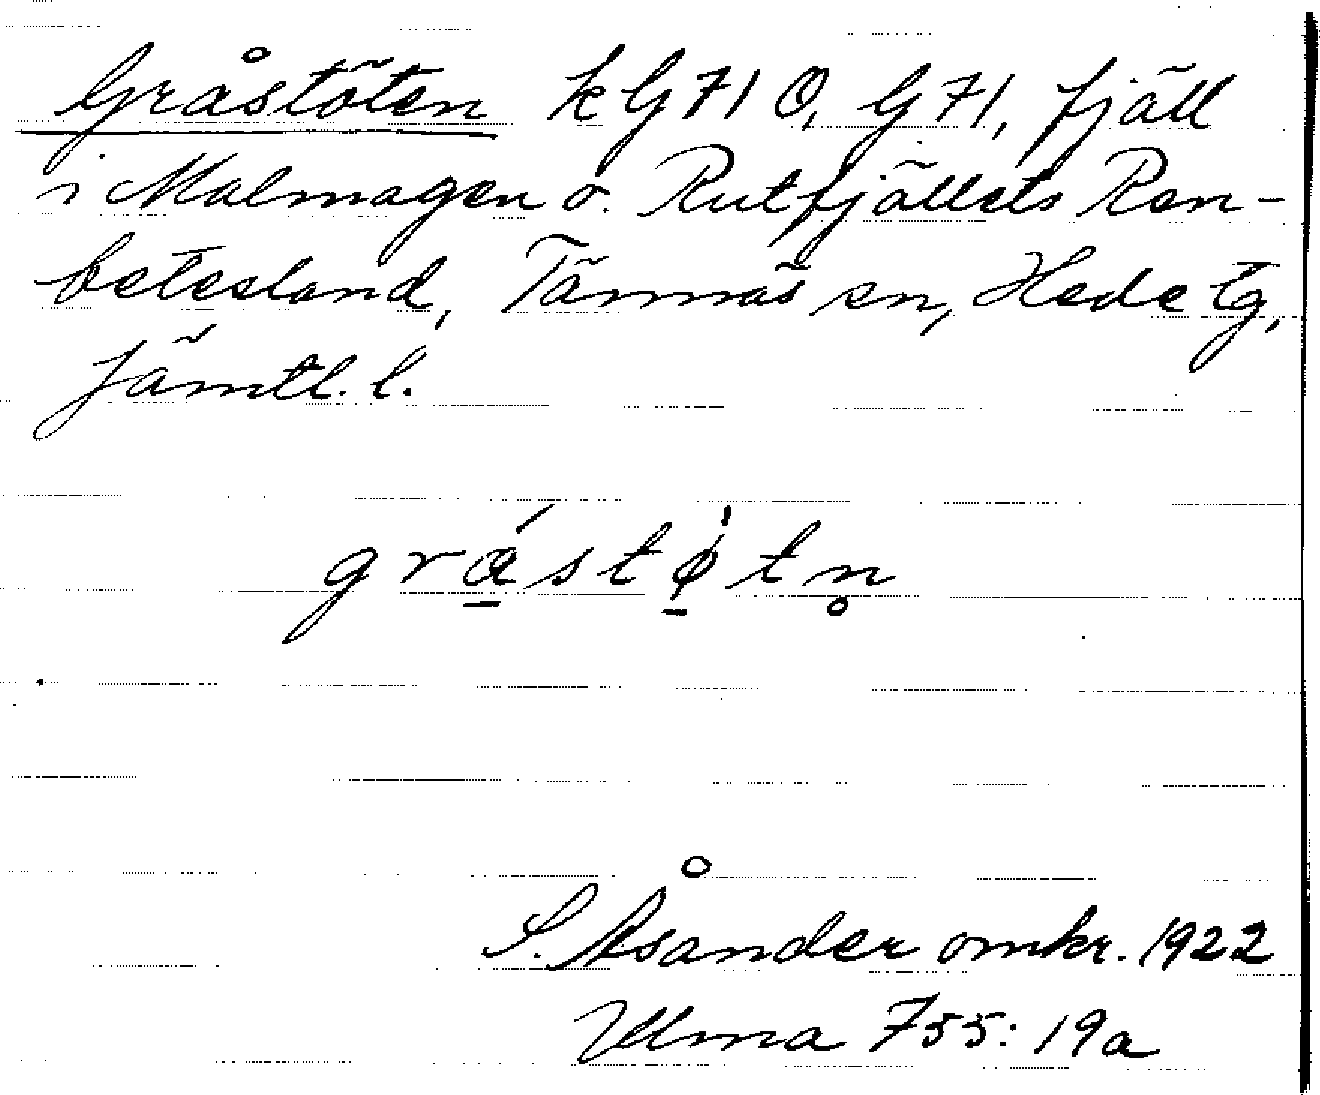 Gråstöten kG71 Ö, G71, fjäll
i Malmagen o. Rutfjällets Ren-
betesland, Tännäs sn, Hede tg,
Jämtl. l.
grá̱stø̱̍tn̥
S. Åsander omkr. 1922
Ulma 755: 19a